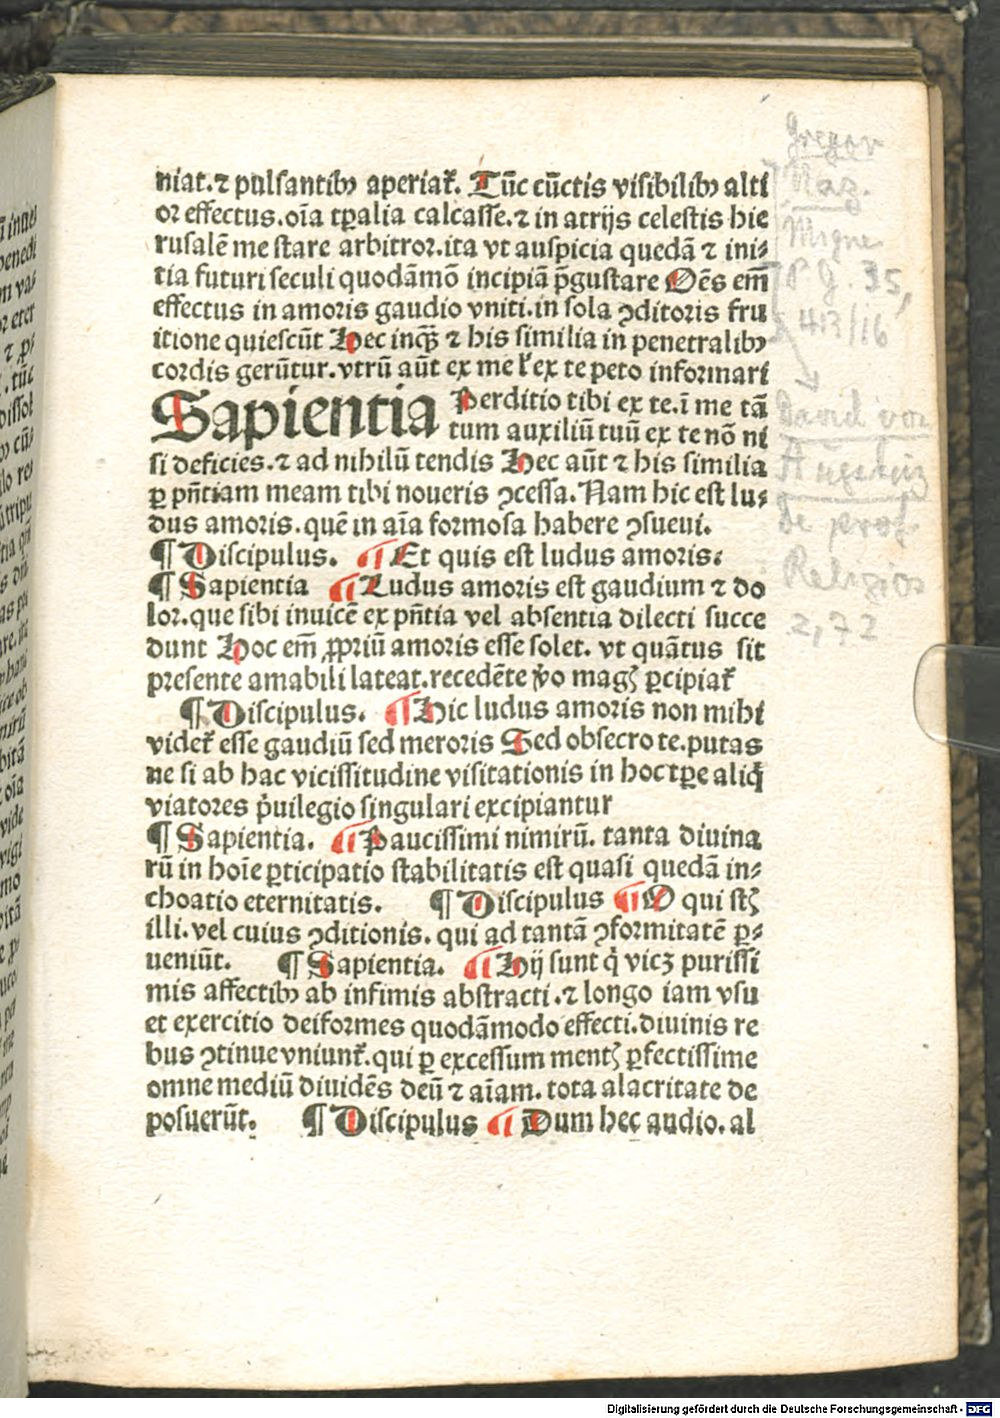 niat.⁊ pulsantibꝯ aperiat᷑. Tūc cūctis visibilibꝯ alti
or effectus.oīa tꝑalia calcasse.⁊ in atrijs celestis hie
rusalē me stare arbitror.ita vt auspicia quedā ⁊ ini⸗
tia futuri seculi quodāmō incipiā p̄gustare Oēs em̄
effectus in amoris gaudio vniti.in sola ꝯditoris fru
itione quiescūt Hec inqꝫ ⁊ his similia in penetralibꝯ
cordis gerūtur.vtrū aūt ex me ł ex te peto informari
Sapientia Perditio tibi ex te.ī me tā
tum auxiliū tuū ex te nō ni
si deficies.⁊ ad nihilū tendis Hec aūt ⁊ his similia
ꝑ pn̄tiam meam tibi noueris ꝯcessa.Nam hic est lu⸗
dus amoris.quē in aīa formosa habere ꝯsueui.
¶ Discipulus. ¶ Et quis est ludus amoris:
¶ Sapientia ¶ Ludus amoris est gaudium ⁊ do
lor.que sibi inuicē ex pn̄tia vel absentia dilecti succe
dunt Hoc em̄ ꝓpriū amoris esse solet. vt quātus sit
presente amabili lateat.recedēte v̊o magꝭ ꝑcipiat᷑
¶ Discipulus. ¶ Hic ludus amoris non mihi
videt᷑ esse gaudiū sed meroris Sed obsecro te.putas
ne si ab hac vicissitudine visitationis in hoc tꝑe aliq̄
viatores p̄uilegio singulari excipiantur
¶ Sapientia. ¶ Paucissimi nimirū. tanta diuina
rū in hoīe ꝑticipatio stabilitatis est quasi quedā in⸗
choatio eternitatis. ¶ Discipulus ¶ O qui stꝭ
illi.vel cuius ꝯditionis.qui ad tantā ꝯformitatē ꝑ⸗
ueniūt. ¶ Sapientia. ¶ Hij sunt q̇ vicꝫ purissi
mis affectibꝯ ab infimis abstracti.⁊ longo iam vsu
et exercitio deiformes quodāmodo effecti.diuinis re
bus ꝯtinue vniunt᷑.qui ꝑ excessum mentꝭ ꝑfectissime
omne mediū diuidēs deū ⁊ aīam.tota alacritate de
posuerūt. ¶ Discipulus ¶ Dum hec audio.al
Gregor
Naz.
Migne
P G. 35,
413/16
David von
Augsburg
De prof.
Religios
2,72
Digitalisierung gefördert durch die Deutsche Forschungsgemeinschaft - DFG